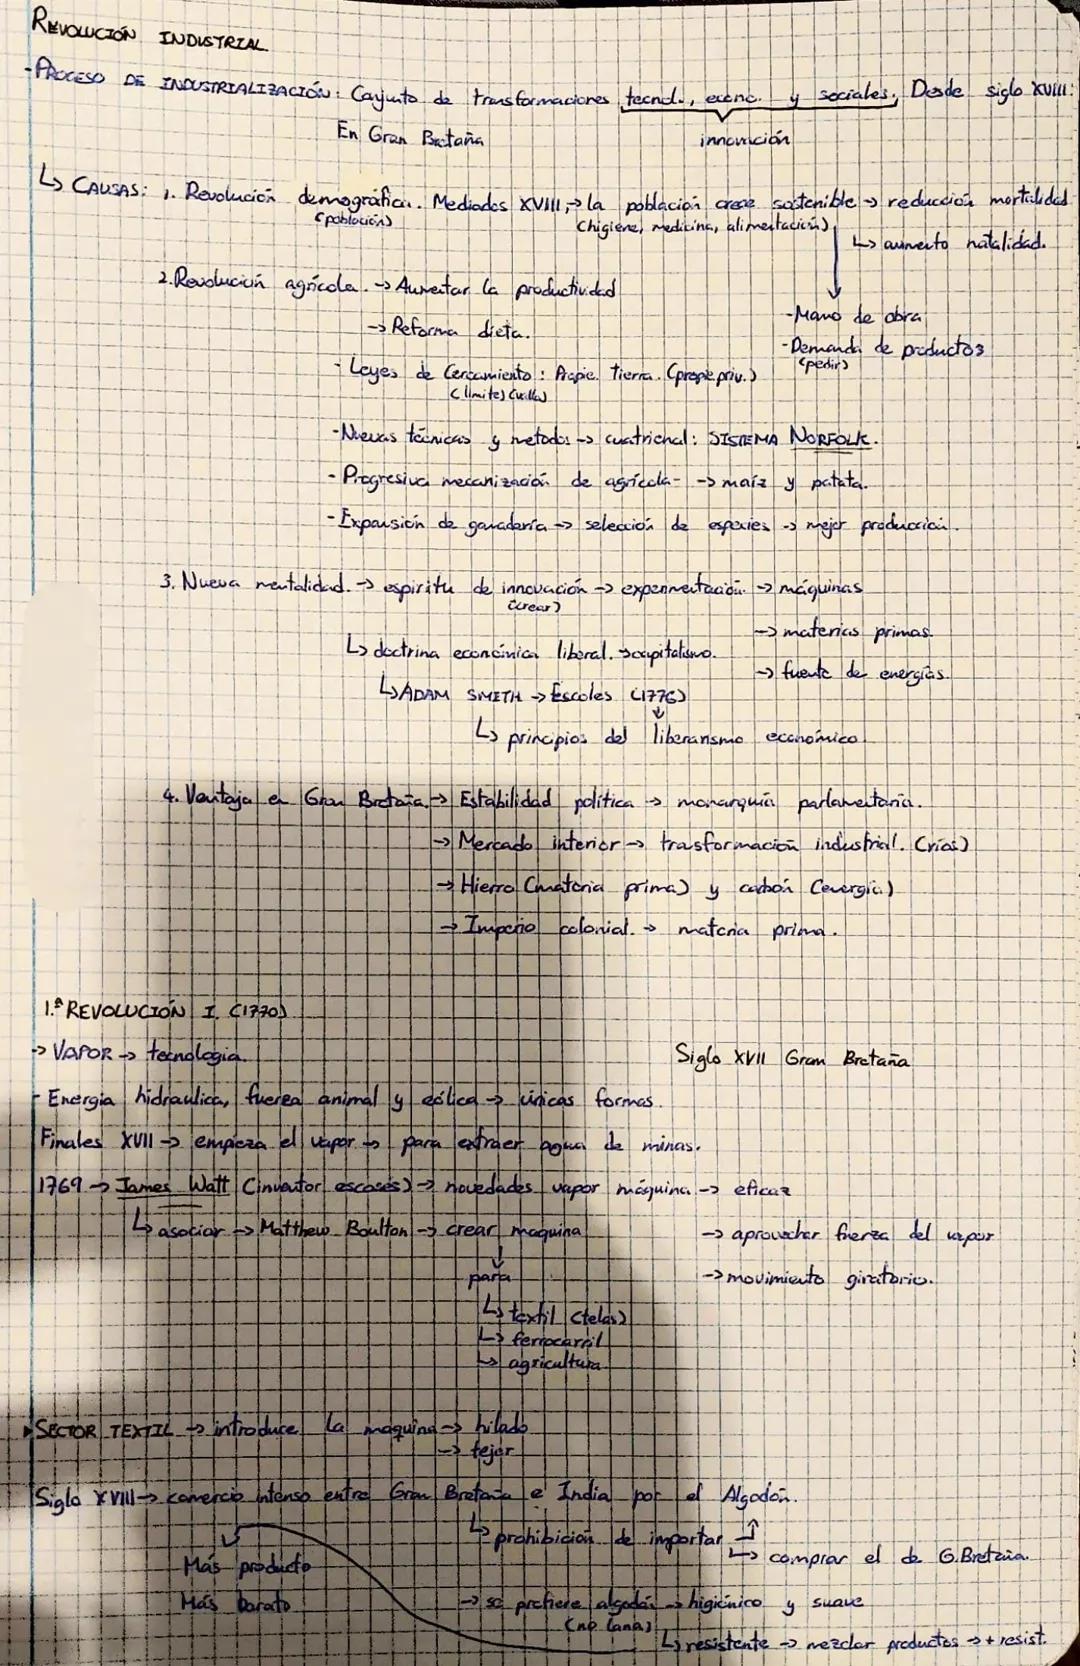 REVOLUCIÓN INDUSTRIAL
-PROCESO DE INDUSTRIALIZACIÓN: Conjunto de transformaciones tecnol., econo. y sociales. Desde siglo XVIII:
En Gran Bretaña innovación
↳ CAUSAS: 1. Revolución demográfica. Mediados XVIII, → la población crece sostenible → reducción mortalidad
(población) (higiene, medicina, alimentación)
↳ aumento natalidad.
2. Revolución agrícola. → Aumentar la productividad
-Mano de obra
→ Reforma dieta.
-Demanda de productos
(pedir)
- Leyes de Cercamiento: Propie. Tierra. (propie priv.)
(límite) (valla)
-Nuevas técnicas y metodos → cuatrienal: SISTEMA NORFOLK.
- Progresiva mecanización de agrícola- → maíz y patata.
-Expansión de ganadería → selección de especies → mejor producción.
3. Nueva mentalidad. → espiritu de innovación → experimentación → máquinas
(crear)
→ materias primas.
↳ doctrina económica liberal. → capitalismo.
→ fuente de energías.
↳ ADAM SMITH → Escoles (1776)
↳ principios del liberarismo económico.
4. Ventaja en Gran Bretaña. → Estabilidad política → monarquía parlamentaria.
→ Mercado interior → trasformación industrial. (ríos)
→ Hierro (materia prima) y carbón (energía)
→ Imperio colonial. → materia prima.
1.ª REVOLUCIÓN I. (1770)
→ VAPOR → tecnologia.
Siglo XVII Gran Bretaña
- Energia hidraulica, fuerza animal y eólica → únicas formas.
Finales XVII → empieza el vapor → para extraer agua de minas.
1769 → James Watt (inventor escocés) → novedades vapor máquina → eficaz
↳ asociar → Matthew Boulton → crear maquina
→ aprovechar fuerza del vapor
para
→ movimiento giratorio.
↳ textil (telas)
↳ ferrocarril
↳ agricultura.
▸SECTOR TEXTIL → introduce la maquina → hilado
→ tejer
Siglo XVIII → comercio intenso entre Gran Bretaña e India por el Algodón.
↳ prohibición de importar
↳ comprar el de G.Bretaña.
Más producto
Más barato
→ se prefiere algodón → higiénico y suave
(no lana)
↳ resistente → mezclar productos → + resist.